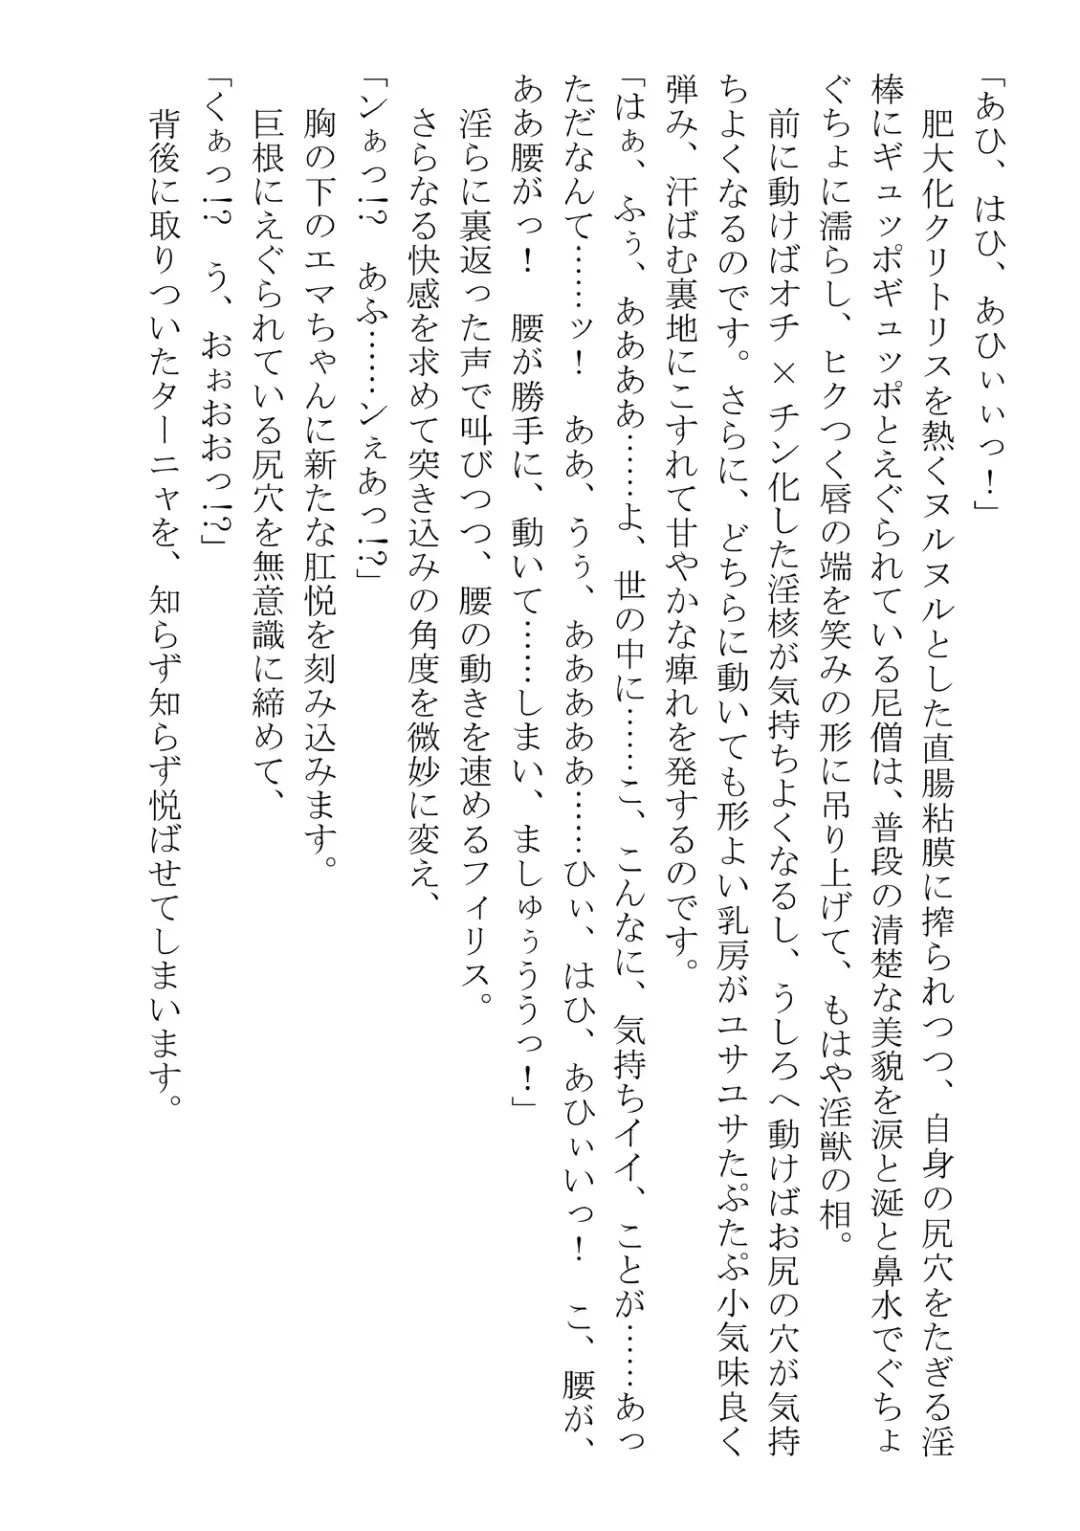 「あひ、はひ、あひぃぃっ！」
　肥大化クリトリスを熱くヌルヌルとした直腸粘膜に搾られつつ、自身の尻穴をたぎる淫
棒にギュッポギュッポとえぐられている尼僧は、普段の清楚な美貌を涙と涎と鼻水でぐちょ
ぐちょに濡らし、ヒクつく唇の端を笑みの形に吊り上げて、もはや淫獣の相。
　前に動けばオチ×チン化した淫核が気持ちよくなるし、うしろへ動けばお尻の穴が気持
ちよくなるのです。さらに、どちらに動いても形よい乳房がユサユサたぷたぷ小気味良く
弾み、汗ばむ裏地にこすれて甘やかな痺れを発するのです。
「はぁ、ふぅ、ああああ……よ、世の中に……こ、こんなに、気持ちイイ、ことが……あっ
ただなんて……ッ！　ああ、うぅ、あああああ……ひぃ、はひ、あひぃいっ！　こ、腰が、
ああ腰がっ！　腰が勝手に、動いて……しまい、ましゅぅううっ！」
　淫らに裏返った声で叫びつつ、腰の動きを速めるフィリス。
　さらなる快感を求めて突き込みの角度を微妙に変え、
「ンぁっ!?　あふ……ンぇあっ!?」
　胸の下のエマちゃんに新たな肛悦を刻み込みます。
　巨根にえぐられている尻穴を無意識に締めて、
「くぁっ!?　う、おぉおおっ!?」
　背後に取りついたターニャを、知らず知らず悦ばせてしまいます。